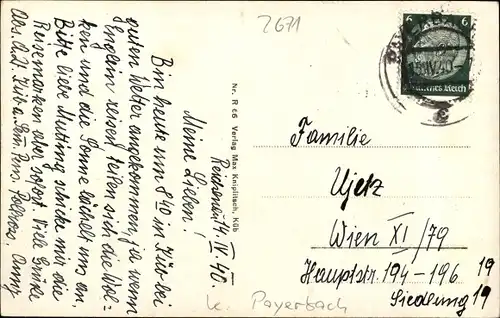 2671
6 6
Deutsches Reich
IV.40
Nr. R 66 Verlag Max Kniplitsch, Küb
Reichenau, 14. IV. 40.
Meine Lieben!
Bin heute um 8 40 in Küb bei
guten Wetter angekommen, ja wenn
Englein reisen teilen sich die Wol=
ken und die Sonne lächelt uns an.
Bitte liebe Mutting schicke mir die
Reisemarken aber sofort. Viele Grüße
Anny
Familie
Ujetz
Wien XI/79
Hauptstr. 194-196 19
Siedlung 19
k. Payerbach